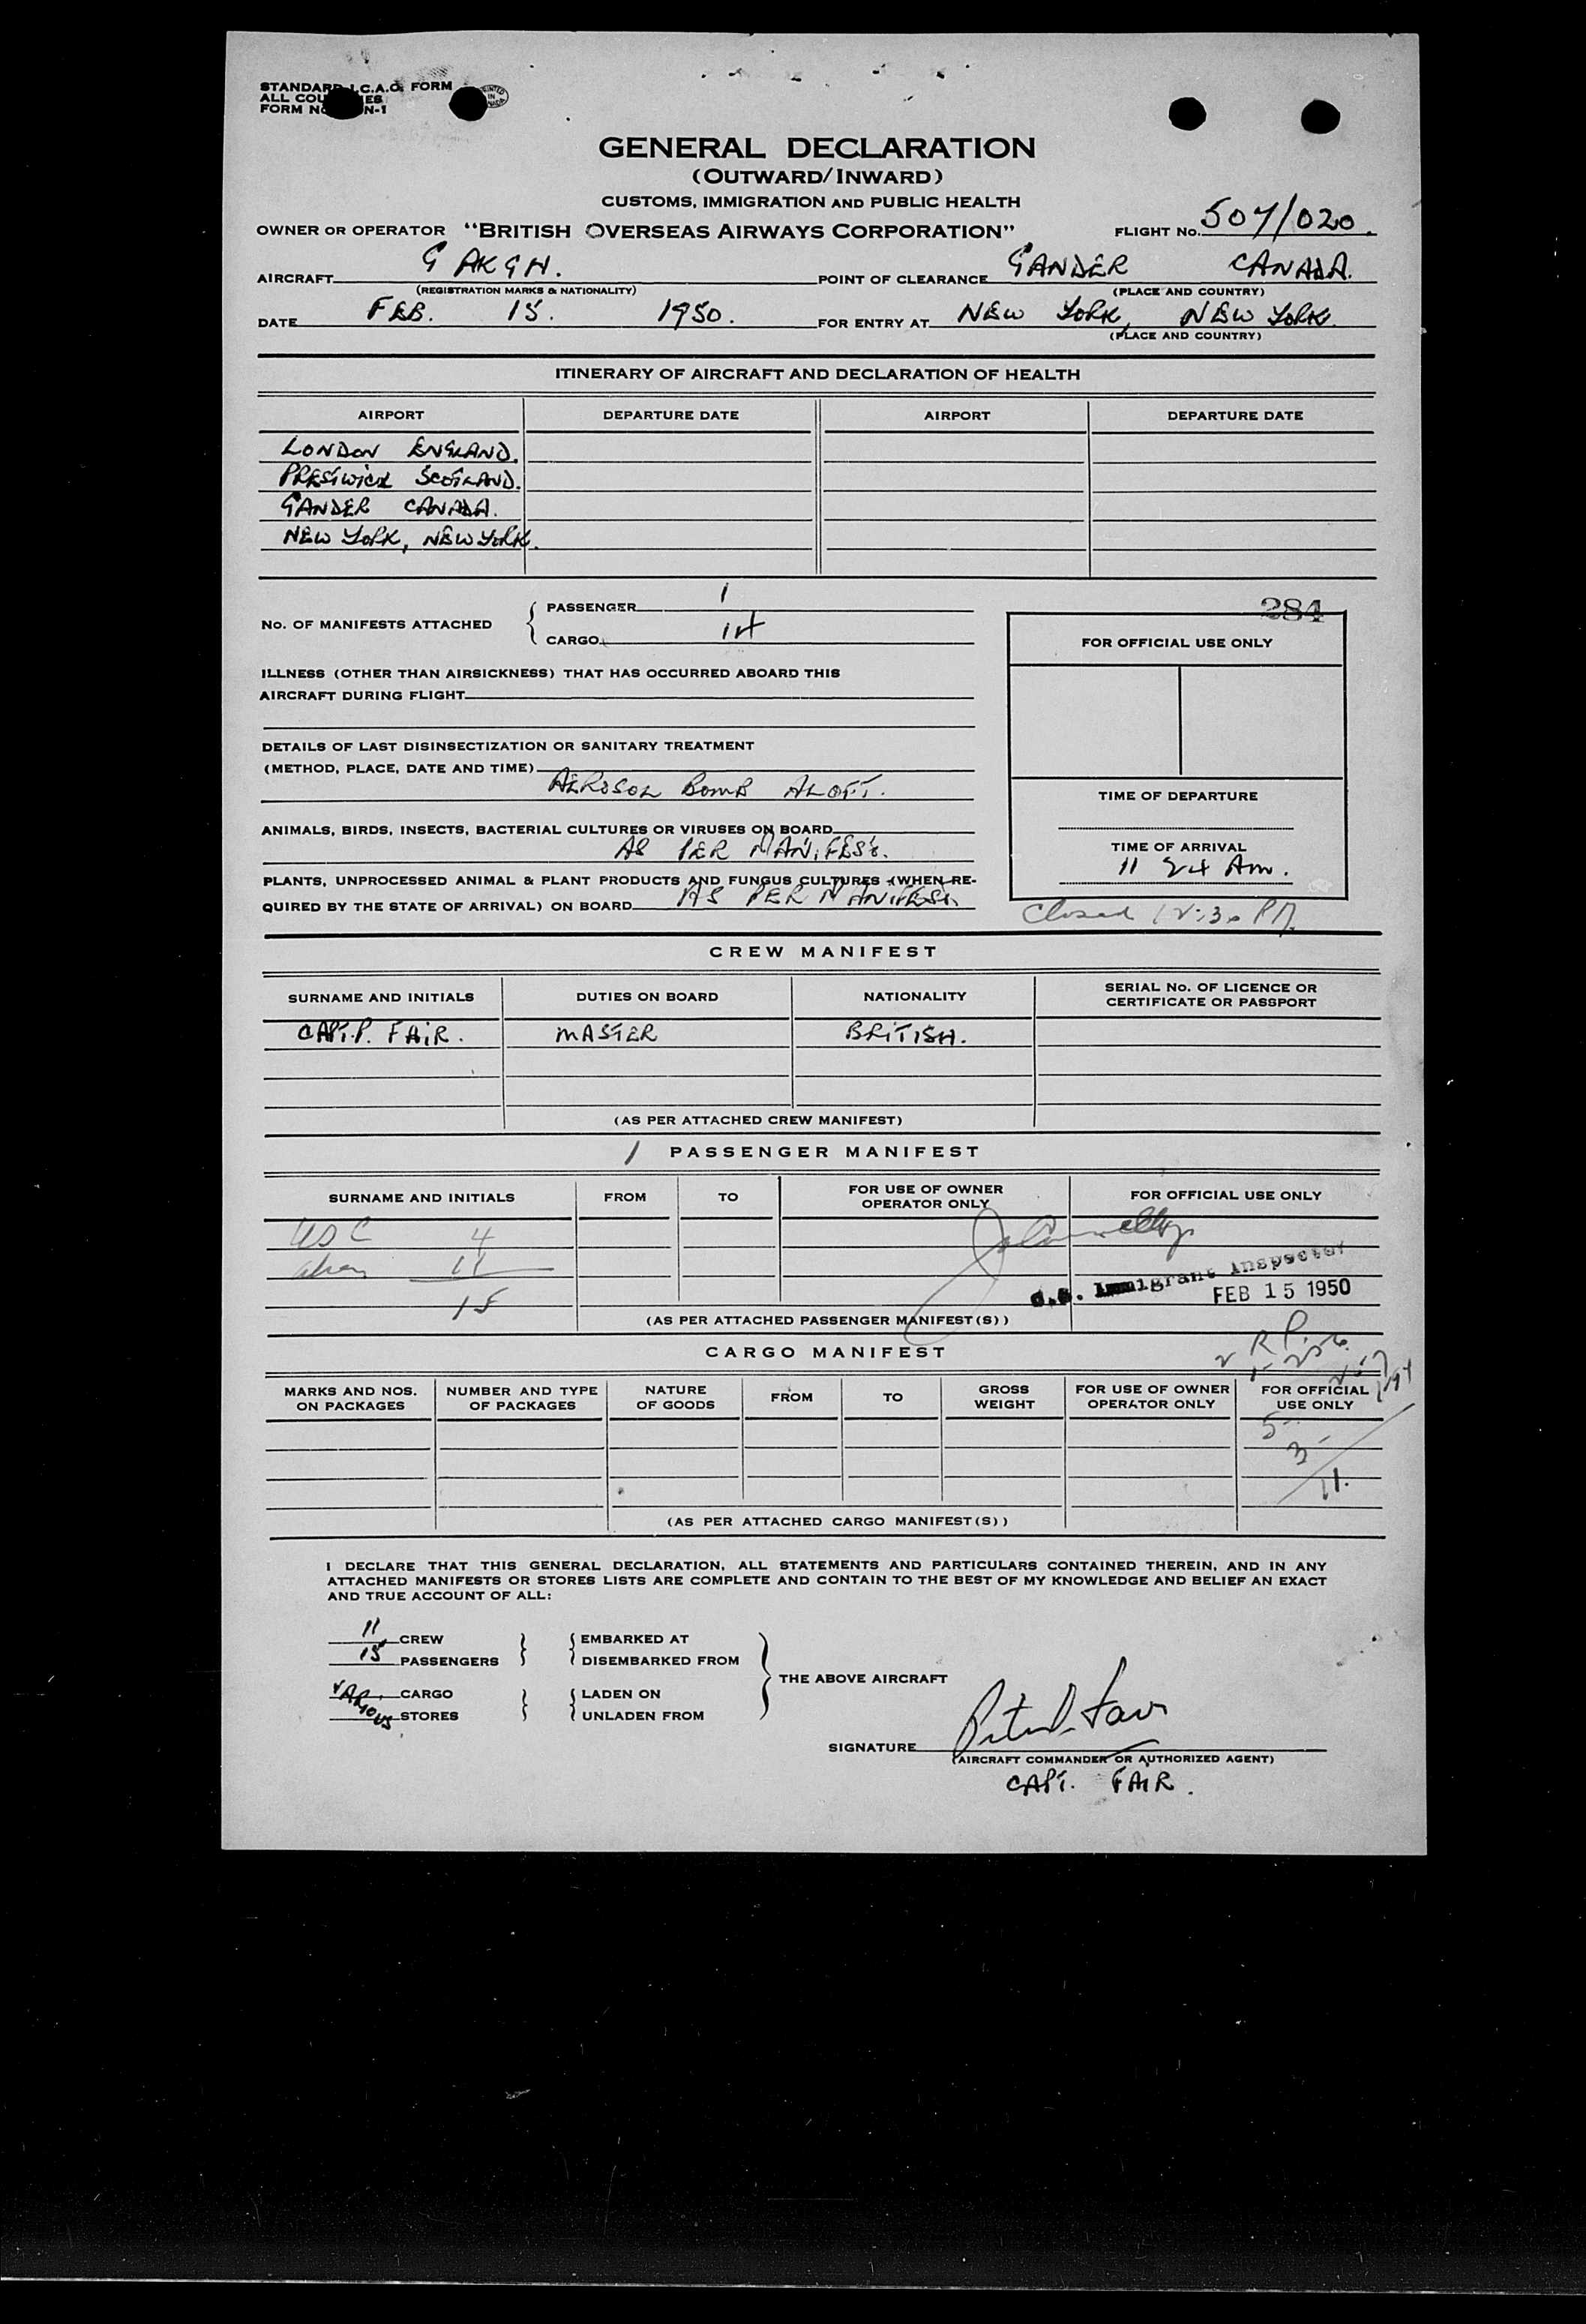 STANDARD I.C.A.O. FORM
ALL COU ES
FORM No N-1
PRINTED IN CANADA
GENERAL DECLARATION
(OUTWARD/INWARD)
CUSTOMS, IMMIGRATION AND PUBLIC HEALTH
OWNER OR OPERATOR "BRITISH OVERSEAS AIRWAYS CORPORATION" FLIGHT No. 507/020.
AIRCRAFT G AKGH. POINT OF CLEARANCE GANDER CANADA.
(REGISTRATION MARKS & NATIONALITY) (PLACE AND COUNTRY)
DATE FEB. 15. 1950. FOR ENTRY AT NEW YORK, NEW YORK.
(PLACE AND COUNTRY)
ITINERARY OF AIRCRAFT AND DECLARATION OF HEALTH
AIRPORT DEPARTURE DATE AIRPORT DEPARTURE DATE
LONDON ENGLAND.
PRESTWICK SCOTLAND.
GANDER CANADA.
NEW YORK, NEW YORK.
No. OF MANIFESTS ATTACHED
PASSENGER 1
CARGO 14
284
FOR OFFICIAL USE ONLY
ILLNESS (OTHER THAN AIRSICKNESS) THAT HAS OCCURRED ABOARD THIS
AIRCRAFT DURING FLIGHT
DETAILS OF LAST DISINSECTIZATION OR SANITARY TREATMENT
(METHOD, PLACE, DATE AND TIME)
AEROSOL BOMB ALOFT.
TIME OF DEPARTURE
ANIMALS, BIRDS, INSECTS, BACTERIAL CULTURES OR VIRUSES ON BOARD
AS PER MANIFEST.
TIME OF ARRIVAL
11 24 Am.
PLANTS, UNPROCESSED ANIMAL & PLANT PRODUCTS AND FUNGUS CULTURES (WHEN RE-
QUIRED BY THE STATE OF ARRIVAL) ON BOARD AS PER MANIFEST.
Closed 12:30 PM.
CREW MANIFEST
SURNAME AND INITIALS DUTIES ON BOARD NATIONALITY SERIAL No. OF LICENCE OR
CERTIFICATE OR PASSPORT
CAPT. P. FAIR. MASTER BRITISH.
(AS PER ATTACHED CREW MANIFEST)
1 PASSENGER MANIFEST
SURNAME AND INITIALS FROM TO FOR USE OF OWNER
OPERATOR ONLY FOR OFFICIAL USE ONLY
USC 4
Alien 11
15
U.S. Immigrant Inspector
FEB 15 1950
(AS PER ATTACHED PASSENGER MANIFEST(S))
CARGO MANIFEST
MARKS AND NOS.
ON PACKAGES
NUMBER AND TYPE
OF PACKAGES
NATURE
OF GOODS
FROM
TO
GROSS
WEIGHT
FOR USE OF OWNER
OPERATOR ONLY
FOR OFFICIAL
USE ONLY
5-
3-
11.
(AS PER ATTACHED CARGO MANIFEST(S))
I DECLARE THAT THIS GENERAL DECLARATION, ALL STATEMENTS AND PARTICULARS CONTAINED THEREIN, AND IN ANY
ATTACHED MANIFESTS OR STORES LISTS ARE COMPLETE AND CONTAIN TO THE BEST OF MY KNOWLEDGE AND BELIEF AN EXACT
AND TRUE ACCOUNT OF ALL:
11 CREW EMBARKED AT
15 PASSENGERS DISEMBARKED FROM
THE ABOVE AIRCRAFT
VARIOUS CARGO LADEN ON
STORES UNLADEN FROM
SIGNATURE
(AIRCRAFT COMMANDER OR AUTHORIZED AGENT)
CAPT. FAIR.